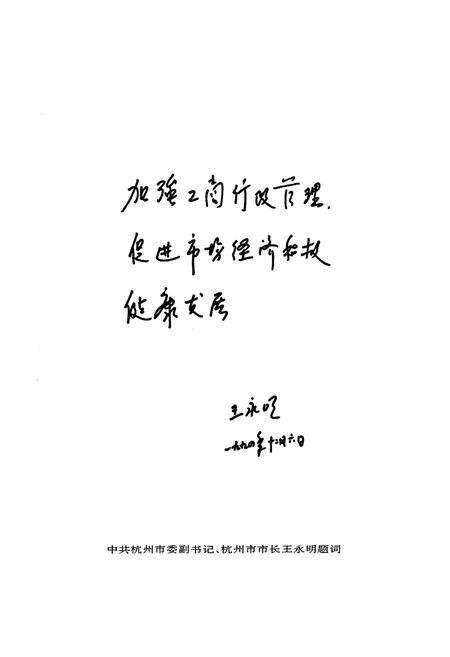 加強工商行政管理，
促进市场经济积极
健康发展
王永明
一九九四年十二月六日
中共杭州市委副书记、杭州市市长王永明题词